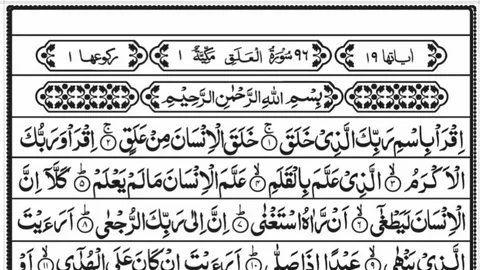 اٰیاتها ١٩ ٩٦ سُوْرَةُ الْعَلَقِ مَكِّيَّةٌ ١ ركوعها ١
بِسْمِ اللهِ الرَّحْمٰنِ الرَّحِيْمِ
اِقْرَاْ بِاسْمِ رَبِّكَ الَّذِیْ خَلَقَ ۚ ١ خَلَقَ الْاِنْسَانَ مِنْ عَلَقٍ ۚ ٢ اِقْرَاْ وَ رَبُّكَ
الْاَكْرَمُ ۙ ٣ الَّذِیْ عَلَّمَ بِالْقَلَمِ ۙ ٤ عَلَّمَ الْاِنْسَانَ مَا لَمْ یَعْلَمْ ؕ ٥ كَلَّاۤ اِنَّ
الْاِنْسَانَ لَیَطْغٰۤى ۙ ٦ اَنْ رَّاٰهُ اسْتَغْنٰى ؕ ٧ اِنَّ اِلٰى رَبِّكَ الرُّجْعٰى ؕ ٨ اَرَءَیْتَ
الَّذِیْ یَنْهٰى ۙ ٩ عَبْدًا اِذَا صَلّٰى ؕ ١٠ اَرَءَیْتَ اِنْ كَانَ عَلَى الْهُدٰۤى ۙ ١١ اَوْ